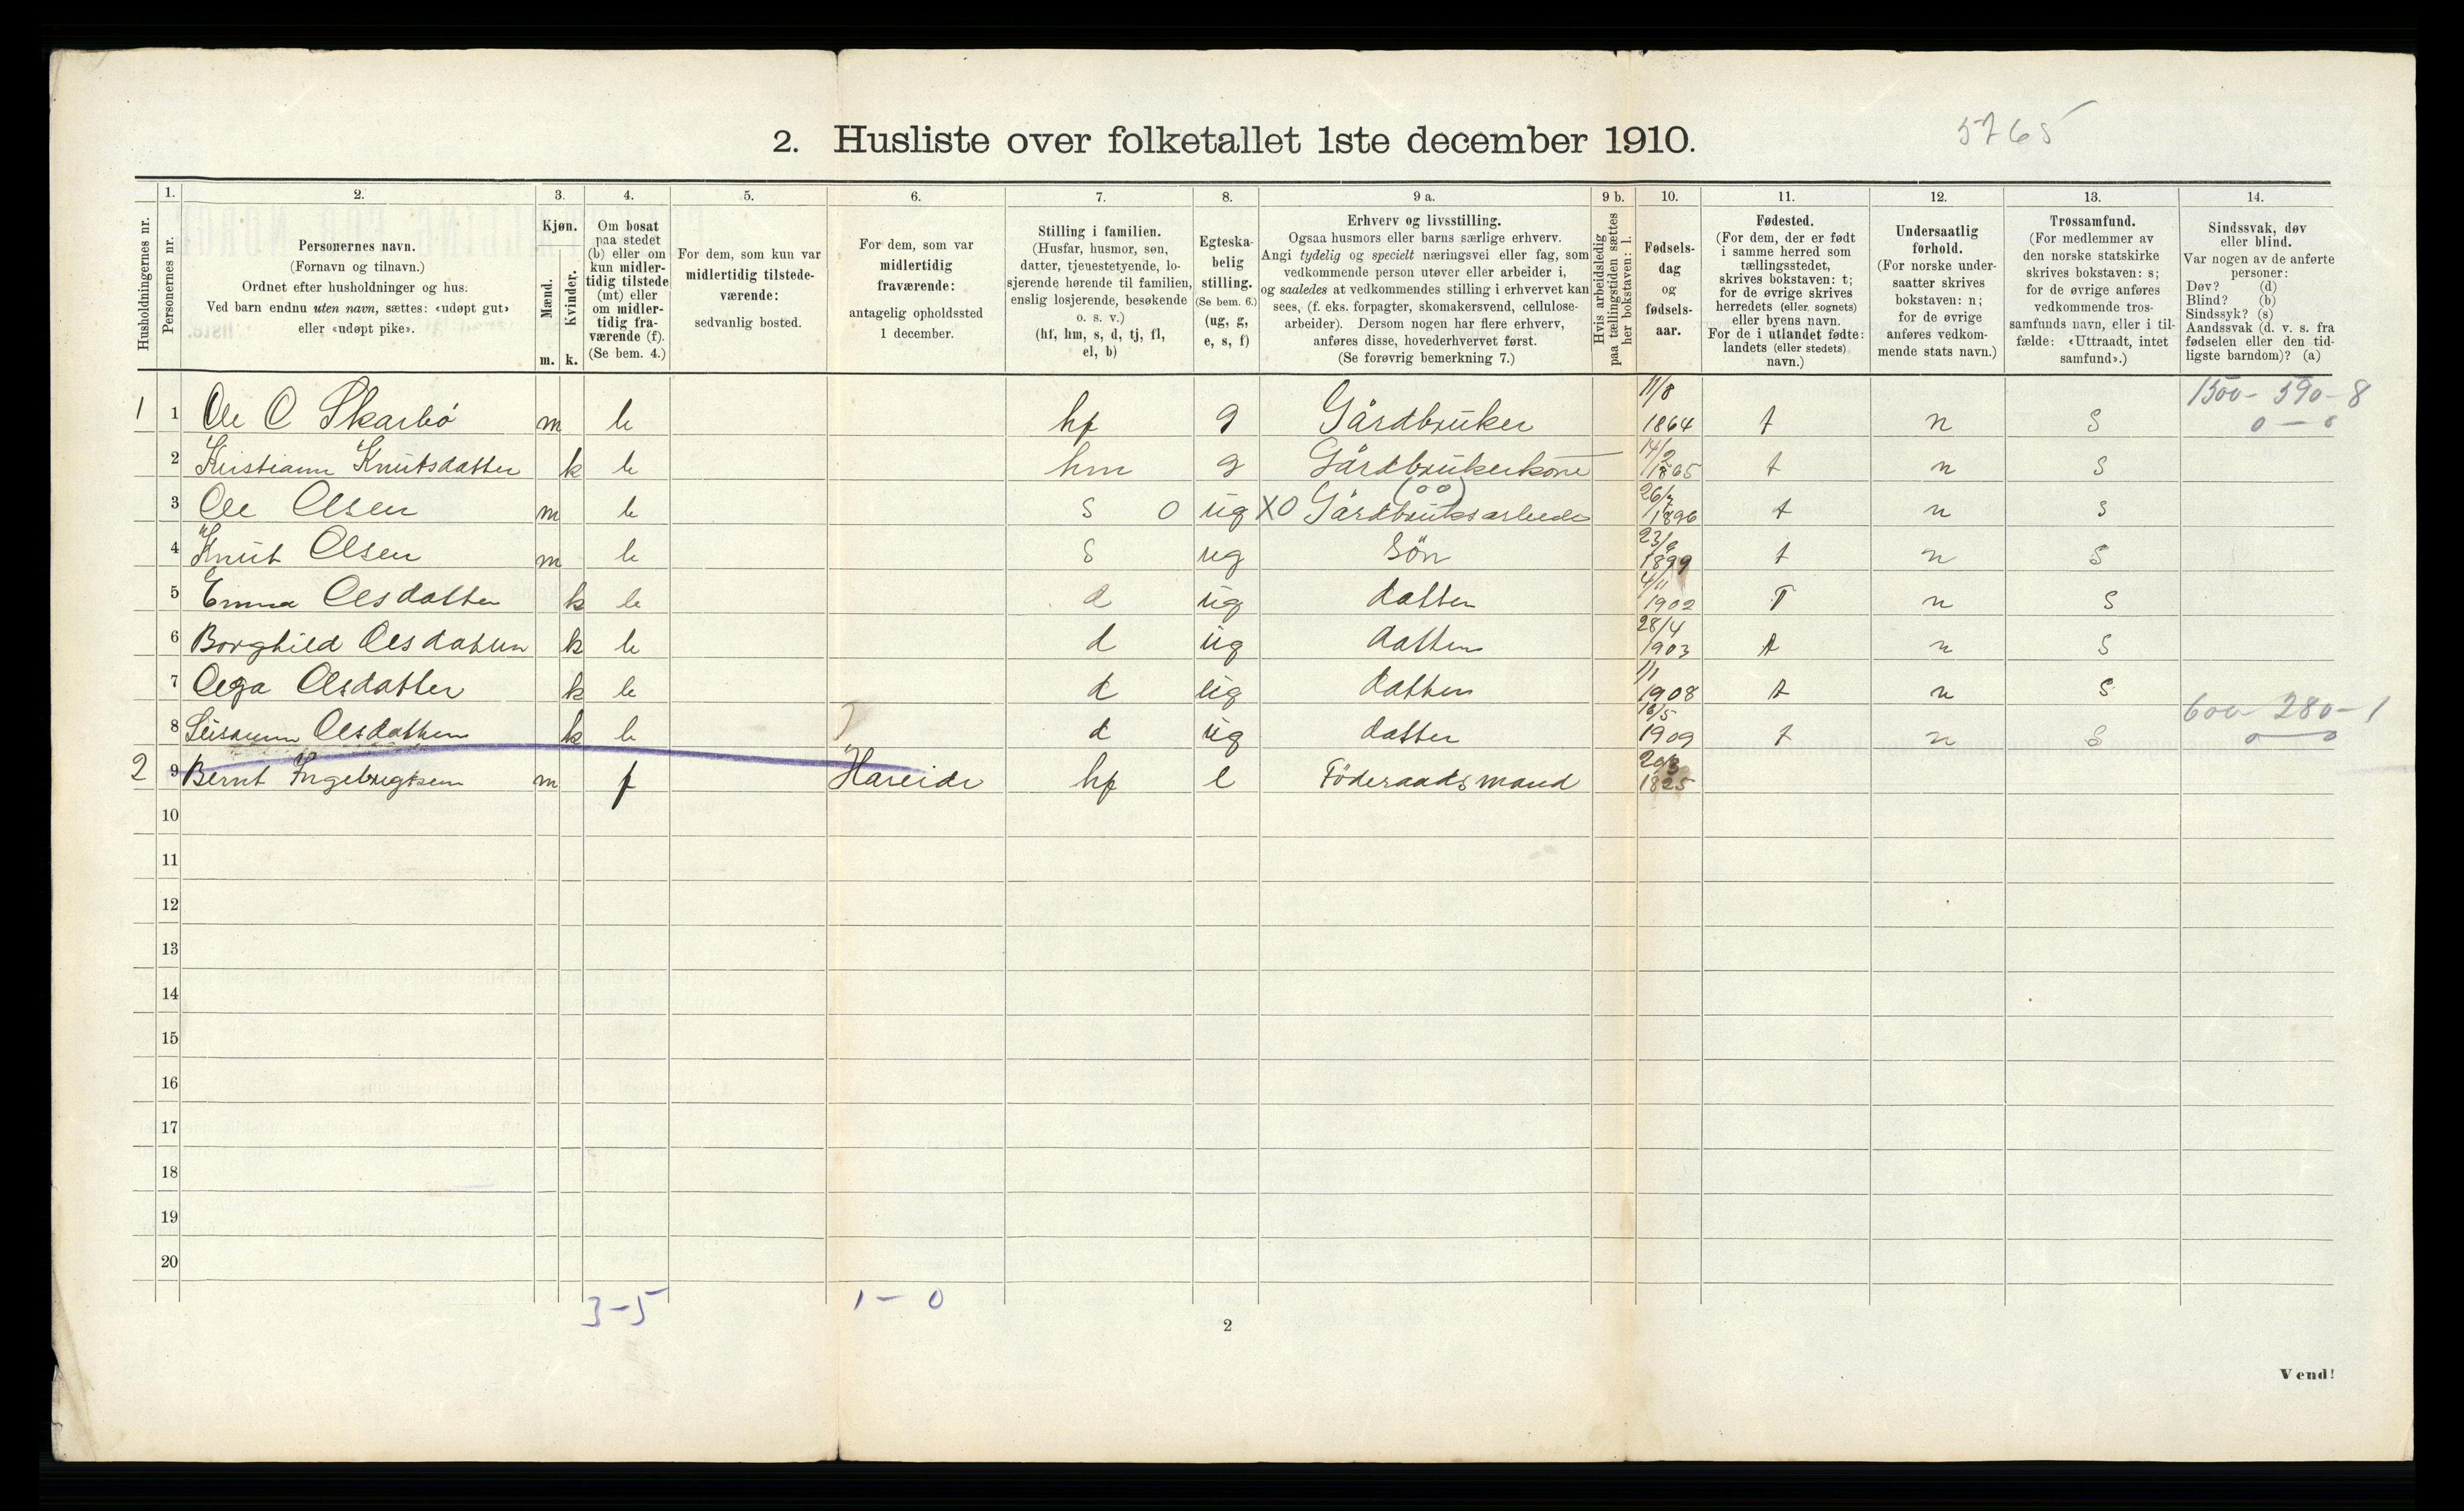 2. Husliste over folketallet 1ste december 1910.
5765
Husholdningernes nr.
1.
Personernes nr.
2.
Personernes navn.
(Fornavn og tilnavn.)
Ordnet efter husholdninger og hus.
Ved barn endnu uten navn, sættes: «udøpt gut»
eller «udøpt pike».
3.
Kjøn.
Mænd.
Kvinder.
m. k.
4.
Om bosat
paa stedet
(b) eller om
kun midler-
tidig tilstede
(mt) eller
om midler-
tidig fra-
værende (f).
(Se bem. 4.)
5.
For dem, som kun var
midlertidig tilstede-
værende:
sedvanlig bosted.
6.
For dem, som var
midlertidig
fraværende:
antagelig opholdssted
1 december.
7.
Stilling i familien.
(Husfar, husmor, søn,
datter, tjenestetyende, lo-
sjerende hørende til familien,
enslig losjerende, besøkende
o. s. v.)
(hf, hm, s, d, tj, fl,
el, b)
8.
Egteska-
belig
stilling.
(Se bem. 6.)
(ug, g,
e, s, f)
9 a.
Erhverv og livsstilling.
Ogsaa husmors eller barns særlige erhverv.
Angi tydelig og specielt næringsvei eller fag, som
vedkommende person utøver eller arbeider i,
og saaledes at vedkommendes stilling i erhvervet kan
sees, (f. eks. forpagter, skomakersvend, cellulose-
arbeider). Dersom nogen har flere erhverv,
anføres disse, hovederhvervet først.
(Se forøvrig bemerkning 7.)
9 b.
Hvis arbeidsledig
paa tællingstiden sættes
her bokstaven: l.
10.
Fødsels-
dag
og
fødsels-
aar.
11.
Fødested.
(For dem, der er født
i samme herred som
tællingsstedet,
skrives bokstaven: t;
for de øvrige skrives
herredets (eller sognets)
eller byens navn.
For de i utlandet fødte:
landets (eller stedets)
navn.)
12.
Undersaatlig
forhold.
(For norske under-
saatter skrives
bokstaven: n;
for de øvrige
anføres vedkom-
mende stats navn.)
13.
Trossamfund.
(For medlemmer av
den norske statskirke
skrives bokstaven: s;
for de øvrige anføres
vedkommende tros-
samfunds navn, eller i til-
fælde: «Uttraadt, intet
samfund».)
14.
Sindssvak, døv
eller blind.
Var nogen av de anførte
personer:
Døv? (d)
Blind? (b)
Sindssyk? (s)
Aandssvak (d. v. s. fra
fødselen eller den tid-
ligste barndom)? (a)
1 1 Ole O Skarbö m b hf g Gårdbruker 11/8 1864 t n S 1500 - 590 - 8
0 — 0
2 Kristianne Knutsdatter k b hm g Gårdbrukerkone 14/2 1865 t n S
3 Ole Olsen m b S 0 ug X0 Gårdbruksarbeide (00) 26/7 1896 t n S
4 Knut Olsen m b S ug Sön 23/9 1899 t n S
5 Emma Olsdatter k b d ug datter 4/11 1902 T n S
6 Borghild Olsdatter k b d ug datter 28/4 1903 t n S
7 Olga Olsdatter k b d ug datter 1/1 1908 t n S
8 Olsdatter k b d ug datter 16/5 1909 t n S 600 - 280 - 1
0 — 0
2 9 Bernt Ingebrigtsen m f Hareide hf e Föderaadsmand 1825
10
11
12
13
14
15
16
17
18
19
20
3 - 5
1 - 0
2
Vend!